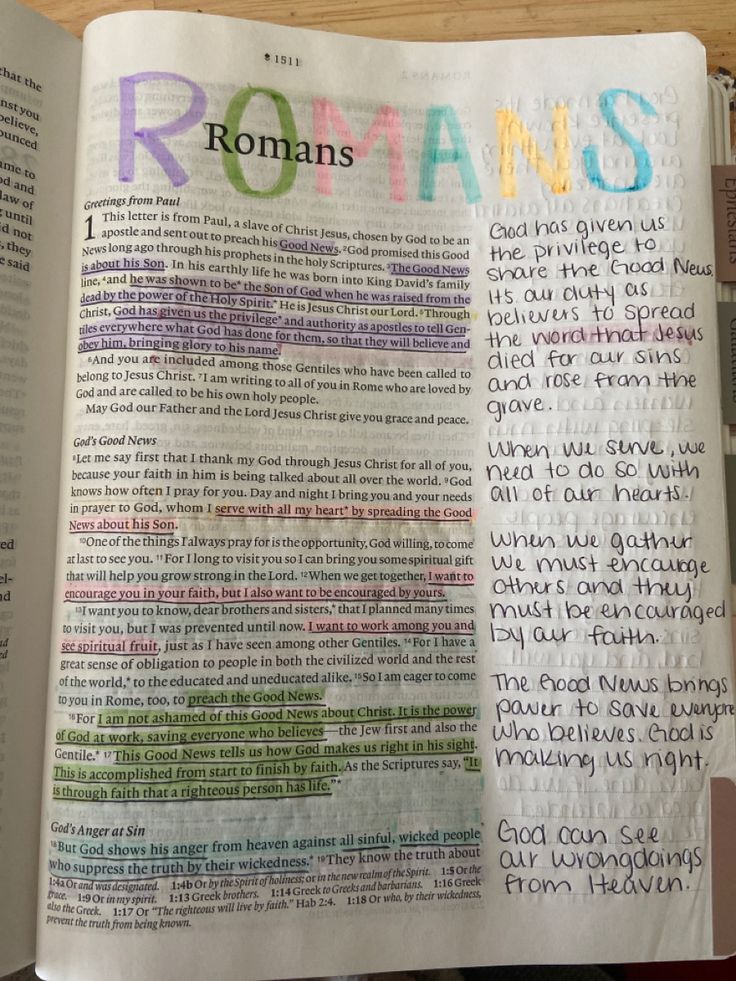 1511
ROMANS
Romans
Greetings from Paul
1 This letter is from Paul, a slave of Christ Jesus, chosen by God to be an
apostle and sent out to preach his Good News. 2God promised this Good
News long ago through his prophets in the holy Scriptures. 3The Good News
is about his Son. In his earthly life he was born into King David's family
line, 4and he was shown to be* the Son of God when he was raised from the
dead by the power of the Holy Spirit.* He is Jesus Christ our Lord. 5Through
Christ, God has given us the privilege* and authority as apostles to tell Gen-
tiles everywhere what God has done for them, so that they will believe and
obey him, bringing glory to his name.
6And you are included among those Gentiles who have been called to
belong to Jesus Christ. 7I am writing to all of you in Rome who are loved by
God and are called to be his own holy people.
May God our Father and the Lord Jesus Christ give you grace and peace.
God's Good News
8Let me say first that I thank my God through Jesus Christ for all of you,
because your faith in him is being talked about all over the world. 9God
knows how often I pray for you. Day and night I bring you and your needs
in prayer to God, whom I serve with all my heart* by spreading the Good
News about his Son.
10One of the things I always pray for is the opportunity, God willing, to come
at last to see you. 11For I long to visit you so I can bring you some spiritual gift
that will help you grow strong in the Lord. 12When we get together, I want to
encourage you in your faith, but I also want to be encouraged by yours.
13I want you to know, dear brothers and sisters,* that I planned many times
to visit you, but I was prevented until now. I want to work among you and
see spiritual fruit, just as I have seen among other Gentiles. 14For I have a
great sense of obligation to people in both the civilized world and the rest
of the world,* to the educated and uneducated alike. 15So I am eager to come
to you in Rome, too, to preach the Good News.
16For I am not ashamed of this Good News about Christ. It is the power
of God at work, saving everyone who believes—the Jew first and also the
Gentile.* 17This Good News tells us how God makes us right in his sight.
This is accomplished from start to finish by faith. As the Scriptures say, "It
is through faith that a righteous person has life."*
God's Anger at Sin
18But God shows his anger from heaven against all sinful, wicked people
who suppress the truth by their wickedness.* 19They know the truth about
1:4a Or and was designated. 1:4b Or by the Spirit of holiness; or in the new realm of the Spirit. 1:5 Or the
grace. 1:9 Or in my spirit. 1:13 Greek brothers. 1:14 Greek to Greeks and barbarians. 1:16 Greek
also the Greek. 1:17 Or "The righteous will live by faith." Hab 2:4. 1:18 Or who, by their wickedness,
prevent the truth from being known.
God has given us
the privilege to
share the Good News.
Its our duty as
believers to spread
the word that Jesus
died for our sins
and rose from the
grave.
When we serve, we
need to do so with
all of our hearts.
When we gather
we must encourage
others and they
must be encouraged
by our faith.
The Good News brings
power to save everyone
who believes. God is
making us right.
God can see
our wrongdoings
from Heaven.
Ephesians